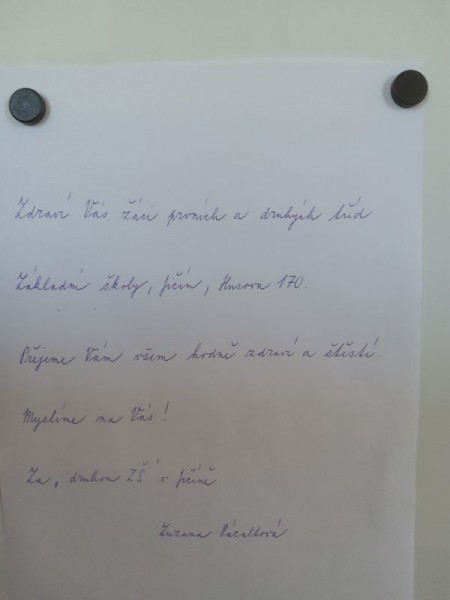 Zdraví Vás žáci prvních a druhých tříd
Základní školy, Jičín, Husova 170.
Přejeme Vám všem hodně zdraví a štěstí.
Myslíme na Vás!
Za "druhou ZŠ" v Jičíně
Zuzana Pácaltová